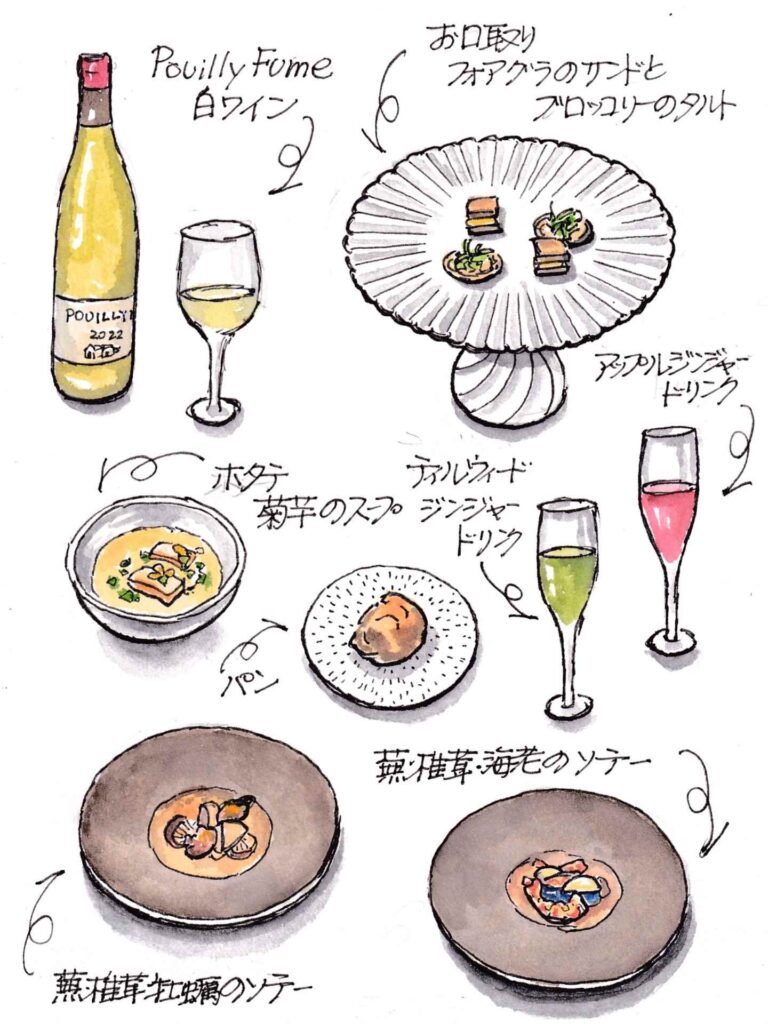 Pouilly Fume
白ワイン
お口取り
フォアグラのサンドと
ブロッコリーのタルト
POUILLY
2022
アップルジンジャー
ドリンク
ホタテ
菊芋のスープ
ティルウィード
ジンジャー
ドリンク
パン
蕪・椎茸・海老のソテー
蕪・椎茸・牡蠣のソテー